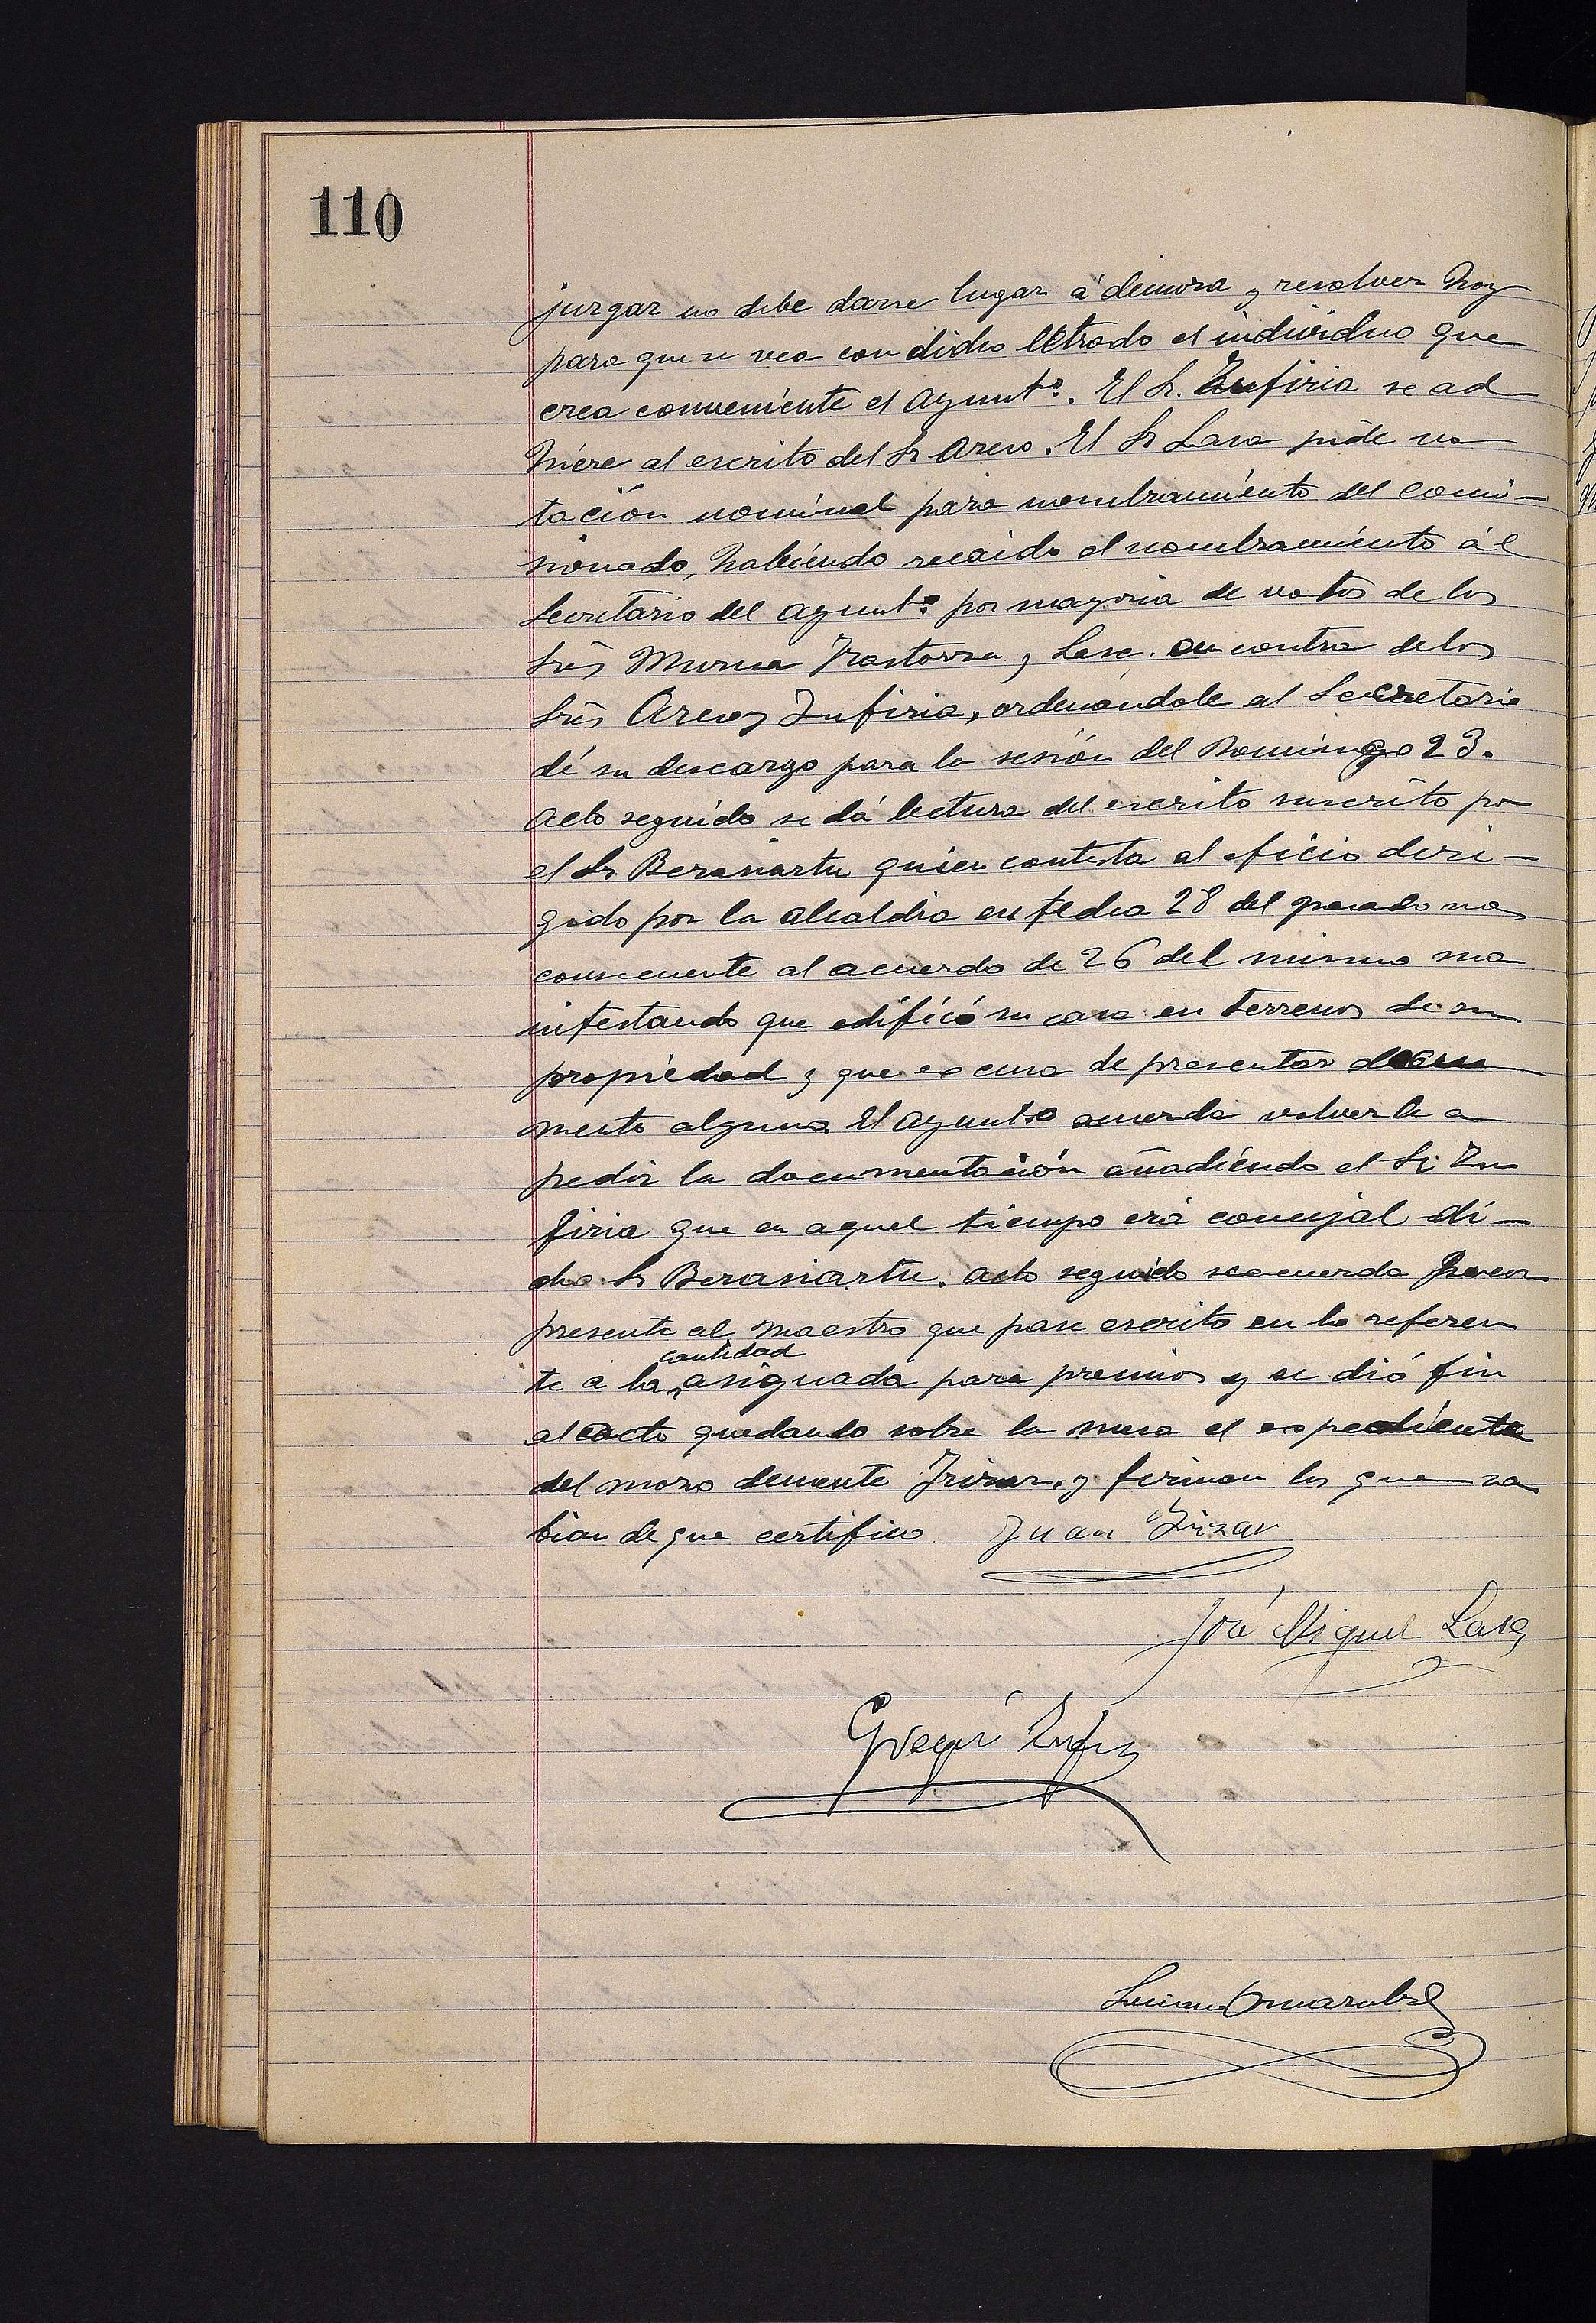 110
jurgar no debe darse lugar á demora y resolver hoy
para que se vea con dicho letrado el individuo que
crea conveniente el Ayuntº. El Sr. Zufiria se ad
hiere al escrito del Sr Areso. El Sr Lasa pide vo
tación nominal para nombramiento del comi-
sionado, habiendo recaido el nombramiento ál
Secretario del Ayuntº por mayoria de votos de los
Srēs Murua Irastorza y Lasa. en contra de los
Srēs Areso y Zufiria, ordenándole al Secretario
dé su descargo para la sesión del Domingo 23.
Acto seguido se dá lectura del escrito suscrito por
el Sr Berasiartu quien contesta al oficio diri-
gido por la Alcaldia en fecha 28 del pasado mes
consecuente al acuerdo de 26 del mismo ma
nifestando que edificó su casa en terrenos de su
propiedad y que excusa de presentar docu
mento alguno. El Ayuntº acuerda volverle a
pedir la documentación añadiendo el Sr Zu
firia que en aquel tiempo era concejal di-
cho Sr Berasiartu. Acto seguido se acuerda hacer
presente al Maestro que pase escrito en lo referen
te a la cantidad asignada para premios y se dió fin
al acto quedando sobre la mesa el expediente
del mozo demente Irizar, y firman los que sa
bian de que certifico Juan Irizar
José Miguel Lasa
Gregorio Zufiria
Luciano